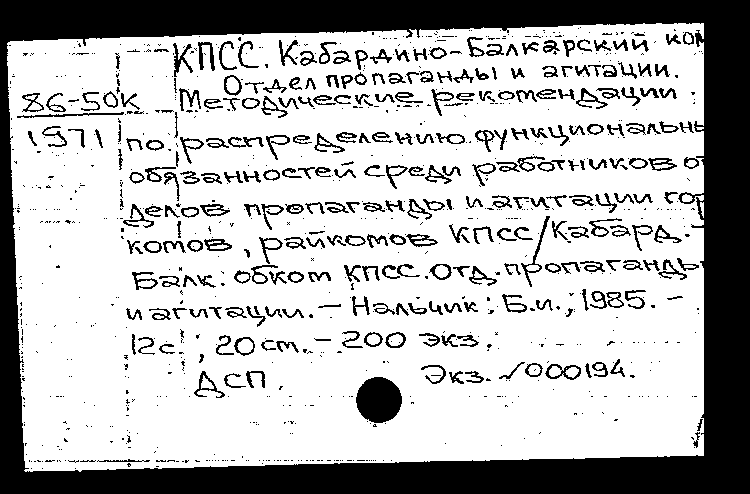 КПСС. Кабардино-Балкарский ком
Отдел пропаганды и агитации.
86-50к Методические рекомендации
1971 по распределению функциональны
обязанностей среди работников от
делов пропаганды и агитации гор
комов, райкомов КПСС/Кабард.-
Балк. обком КПСС. Отд. пропаганды
и агитации. - Нальчик: Б.и., 1985. -
12с.; 20 ст. - 200 экз.
ДСП. Экз. √000194.